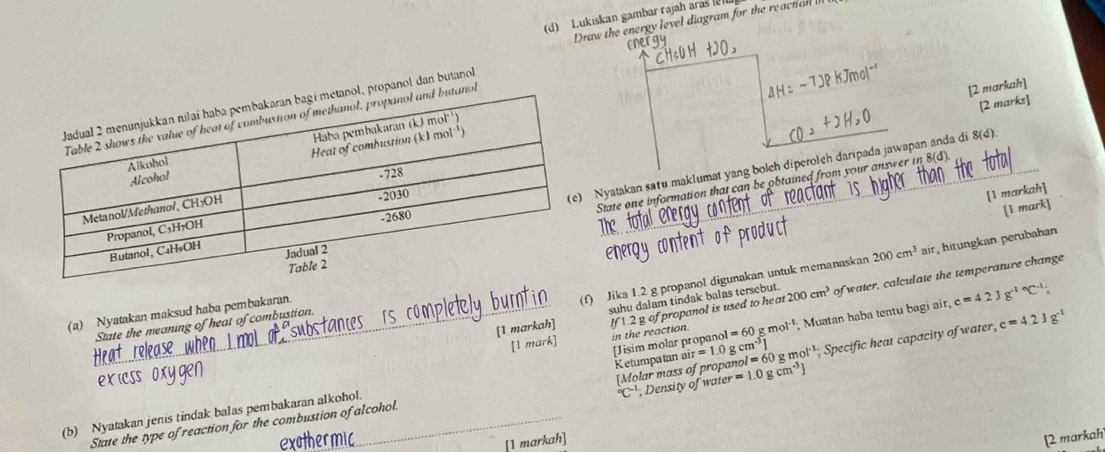 Jadual 2 menunjukkan nilai haba pembakaran bagi metanol, propanol dan butanol
Table 2 shows the value of heat of combustion of methanol, propanol and butanol
Alkohol
Alcohol
Haba pembakaran (kJ mol⁻¹)
Heat of combustion (kJ mol⁻¹)
Metanol/Methanol, CH₃OH
-728
Propanol, C₃H₇OH
-2030
Butanol, C₄H₉OH
-2680
Jadual 2
Table 2
(a) Nyatakan maksud haba pembakaran.
State the meaning of heat of combustion.
Heat release when 1 mol of a substances is completely burnt in
excess oxygen
[1 markah]
[1 mark]
(b) Nyatakan jenis tindak balas pembakaran alkohol.
State the type of reaction for the combustion of alcohol.
exothermic
[1 markah]
(d) Lukiskan gambar rajah aras
Draw the energy level diagram for the reaction
energy
CH₃OH + 2O₂
ΔH = -728 kJmol⁻¹
CO₂ + 2H₂O
[2 markah]
[2 marks]
(e) Nyatakan satu maklumat yang boleh diperoleh daripada jawapan anda di 8(d).
State one information that can be obtained from your answer in 8(d).
The total energy content of reactant is higher than the total
energy content of product
[1 markah]
[1 mark]
(f) Jika 1.2 g propanol digunakan untuk memanaskan 200 cm³ air, hitungkan perubahan
suhu dalam tindak balas tersebut.
If 1.2 g of propanol is used to heat 200 cm³ of water, calculate the temperature change
in the reaction.
[Jisim molar propanol = 60 g mol⁻¹; Muatan haba tentu bagi air, c = 4.2 J g⁻¹ °C⁻¹;
Ketumpatan air = 1.0 g cm⁻³]
[Molar mass of propanol = 60 g mol⁻¹; Specific heat capacity of water, c = 4.2 J g⁻¹
°C⁻¹; Density of water = 1.0 g cm⁻³]
[2 markah